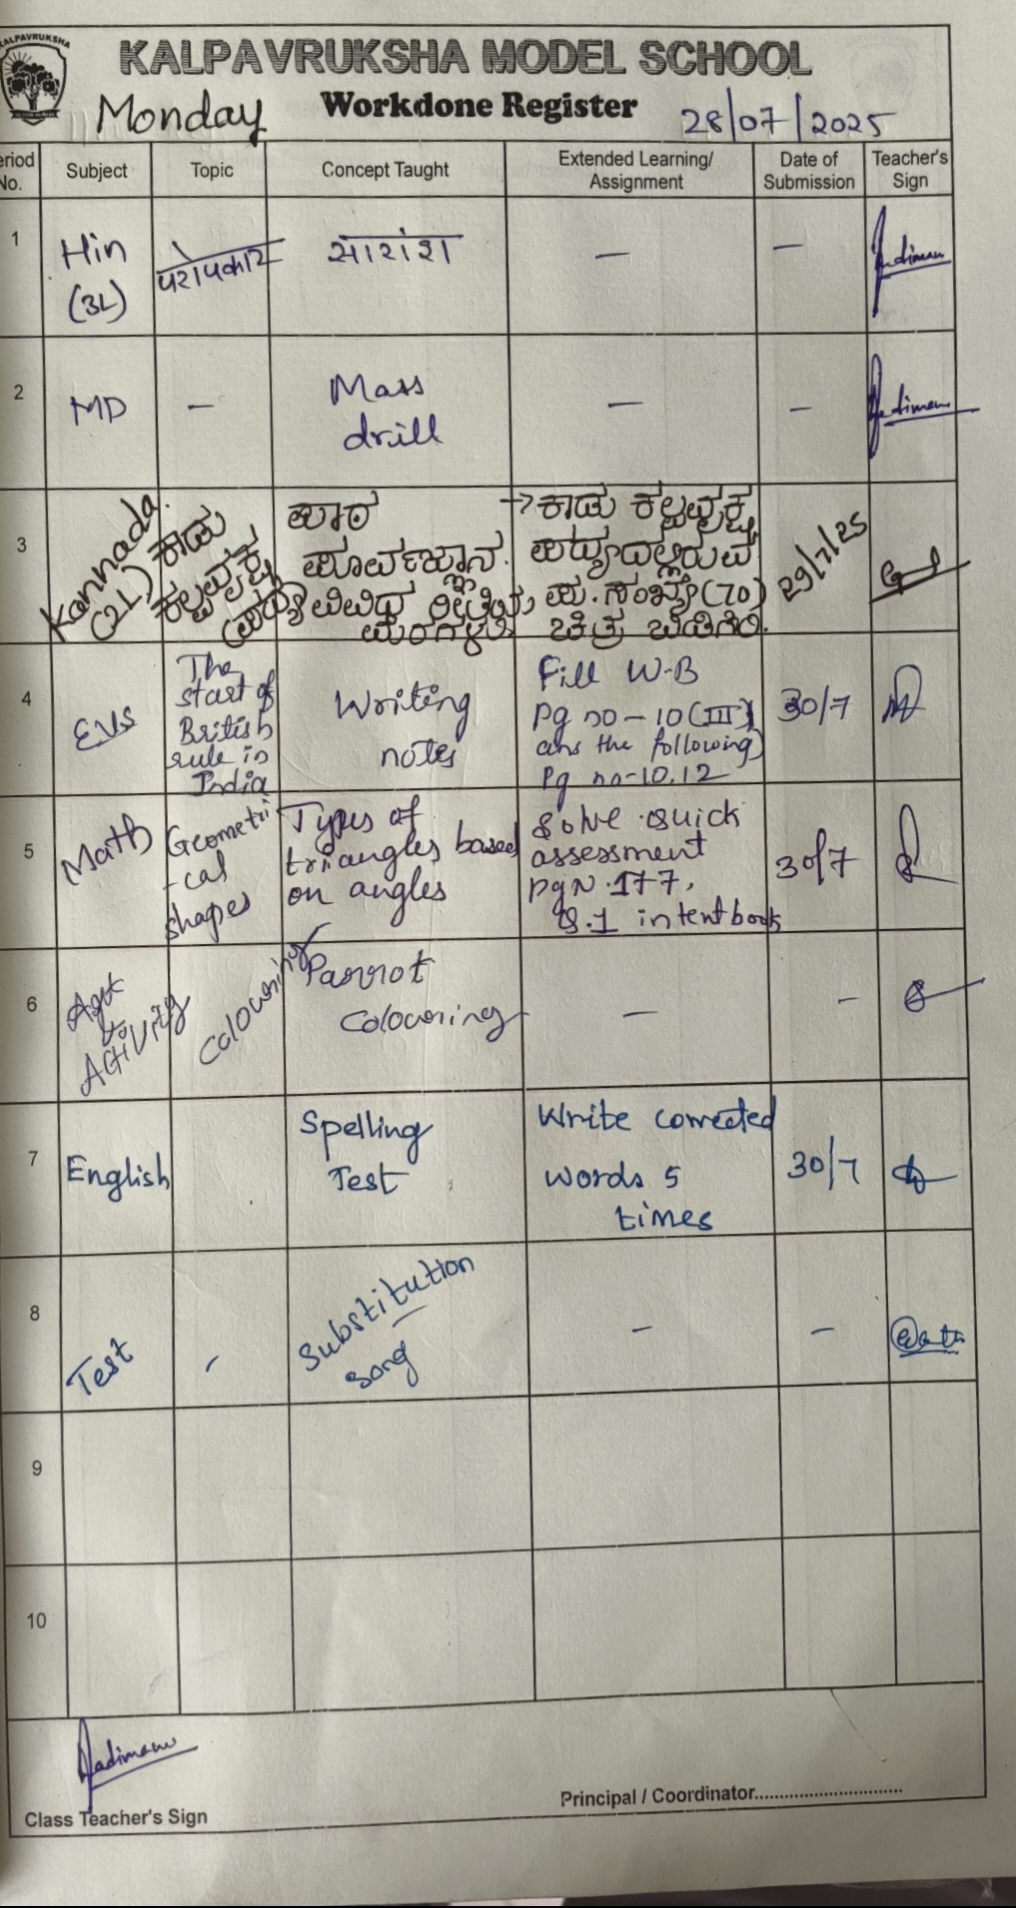 KALPAVRUKSHA
KALPAVRUKSHA MODEL SCHOOL
Monday Workdone Register 28/07/2025
Period No. Subject Topic Concept Taught Extended Learning/ Assignment Date of Submission Teacher's Sign
1 Hin (3L) परोपकार सारांश — —
2 MD — Mass drill — —
3 Kannada (2L) ಕಾಡು ಕಲ್ಪವೃಕ್ಷ (ಪದ್ಯ) ಪಾಠ ಪೂರ್ವಜ್ಞಾನ. ವಿವಿಧ ರೀತಿಯ ಮರಗಳ → ಕಾಡು ಕಲ್ಪವೃಕ್ಷ ಪದ್ಯದಲ್ಲಿರುವ ಪು.ಸಂಖ್ಯೆ(70) ಚಿತ್ರ ಬಿಡಿಸಿರಿ. 29/7/25
4 EVS The start of British rule in India Writing notes Fill W-B Pg no - 10 (III) ans the following Pg no-10,12 30/7
5 Math Geometri-cal shapes Types of triangles based on angles Solve quick assessment pg N.177, Q.1 in text book 30/7
6 Art & Activity Colouring Parrot Colouring — —
7 English Spelling Test Write corrected words 5 times 30/7
8 Test - Substitution song — —
9
10
Class Teacher's Sign
Principal / Coordinator..............................